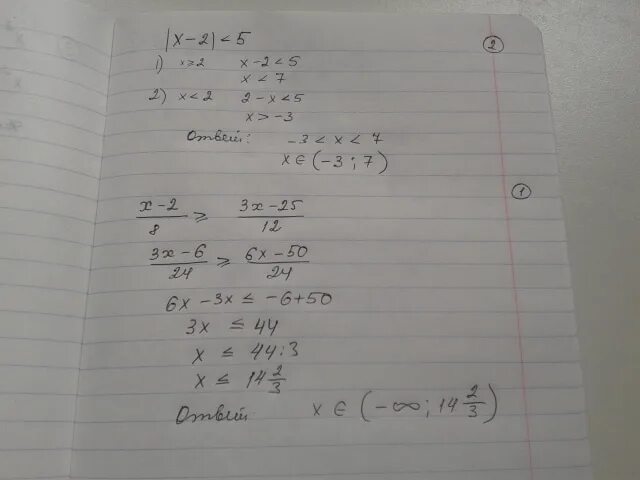 |x-2| < 5 ②
1) x≥2 x-2<5
x < 7
2) x<2 2-x<5
x > -3
Ответ: -3 < x < 7
x ∈ (-3; 7)
①
(x-2)/8 ≥ (3x-25)/12
(3x-6)/24 ≥ (6x-50)/24
6x - 3x ≤ -6+50
3x ≤ 44
x ≤ 44:3
x ≤ 14 2/3
Ответ: x ∈ (-∞; 14 2/3)